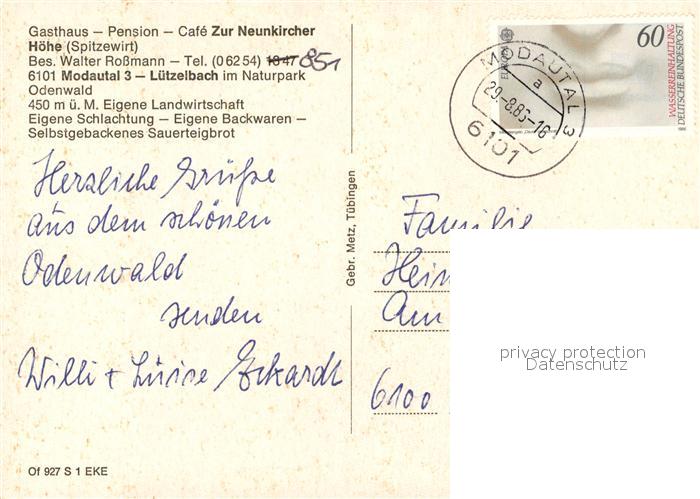 Gasthaus – Pension – Café Zur Neunkircher
Höhe (Spitzewirt)
Bes. Walter Roßmann – Tel. (0 62 54) 18 47 851
6101 Modautal 3 – Lützelbach im Naturpark
Odenwald
450 m ü. M. Eigene Landwirtschaft
Eigene Schlachtung – Eigene Backwaren –
Selbstgebackenes Sauerteigbrot
Herzliche Grüße
aus dem schönen
Odenwald
senden
Willi + Luise Eckardt
Of 927 S 1 EKE
Gebr. Metz, Tübingen
EUROPA
60
WASSERREINHALTUNG
DEUTSCHE BUNDESPOST
MODAUTAL 3
a
29.-8.86-16
6101
Familie
Hein
Am
6100
privacy protection
Datenschutz